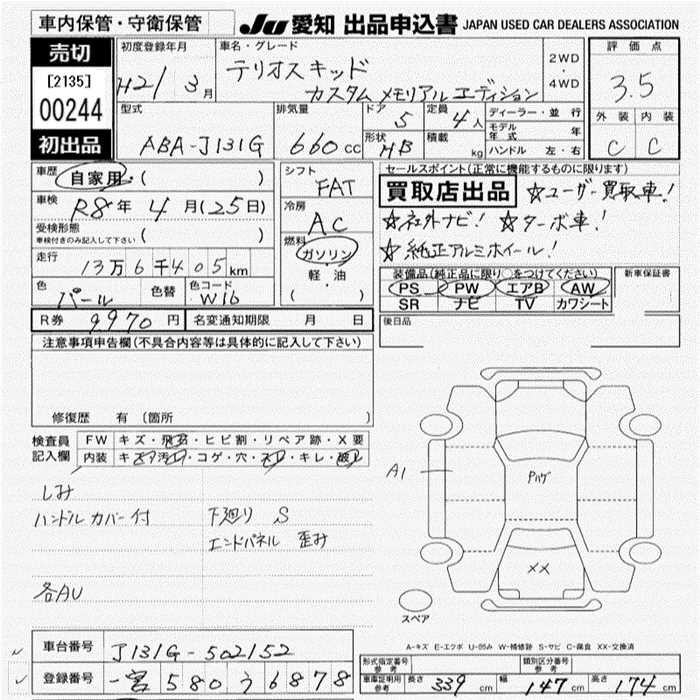 車内保管・守衛保管
JU 愛知 出品申込書 JAPAN USED CAR DEALERS ASSOCIATION
売切
[2135]
00244
初出品
初度登録年月
H21/3月
車名・グレード
テリオスキッド
カスタムメモリアルエディション
2WD
・
4WD
評価点
3.5
外装 内装
C C
型式
ABA-J131G
排気量
660cc
ドア
5
定員
4人
形状
HB
積載
kg
ディーラー・並行
モデル年式 年
ハンドル 左・右
車歴
自家用・( )
車検
R8年 4月(25日)
受検形態
車検付きのみ記入して下さい
( )
走行
13万6千405km
色
パール
色替
色コード
W16
シフト
FAT
冷房
AC
燃料
ガソリン
・
軽・油
( )
セールスポイント(正常に機能するものに限ります)
買取店出品 ☆ユーザー買取車!
☆社外ナビ! ☆ターボ車!
☆純正アルミホイール!
装備品(純正品に限り○をつけてください)
PS PW エアB AW
SR ナビ TV カワシート
新車保証書
後日品
R券 9,970円 名変通知期限 月 日
注意事項申告欄(不具合内容等は具体的に記入して下さい)
修復歴 有 (箇所 )
検査員記入欄
FW キズ・飛石・ヒビ割・リペア跡・X要
内装 キズ・汚れ・コゲ・穴・スレ・キレ・破レ
しみ
ハンドルカバー付 下廻り S
エンドパネル 歪み
各AU
A1
Pハゲ
XX
スペア
A-キズ E-エクボ U-凹み W-補修跡 S-サビ C-腐食 XX-交換済
車台番号 J131G-502152
登録番号 一宮 580 う 6878
形式指定番号 参考
類別区分番号 参考
車庫証明用 参考 長さ 339cm 幅 147cm 高さ 174cm